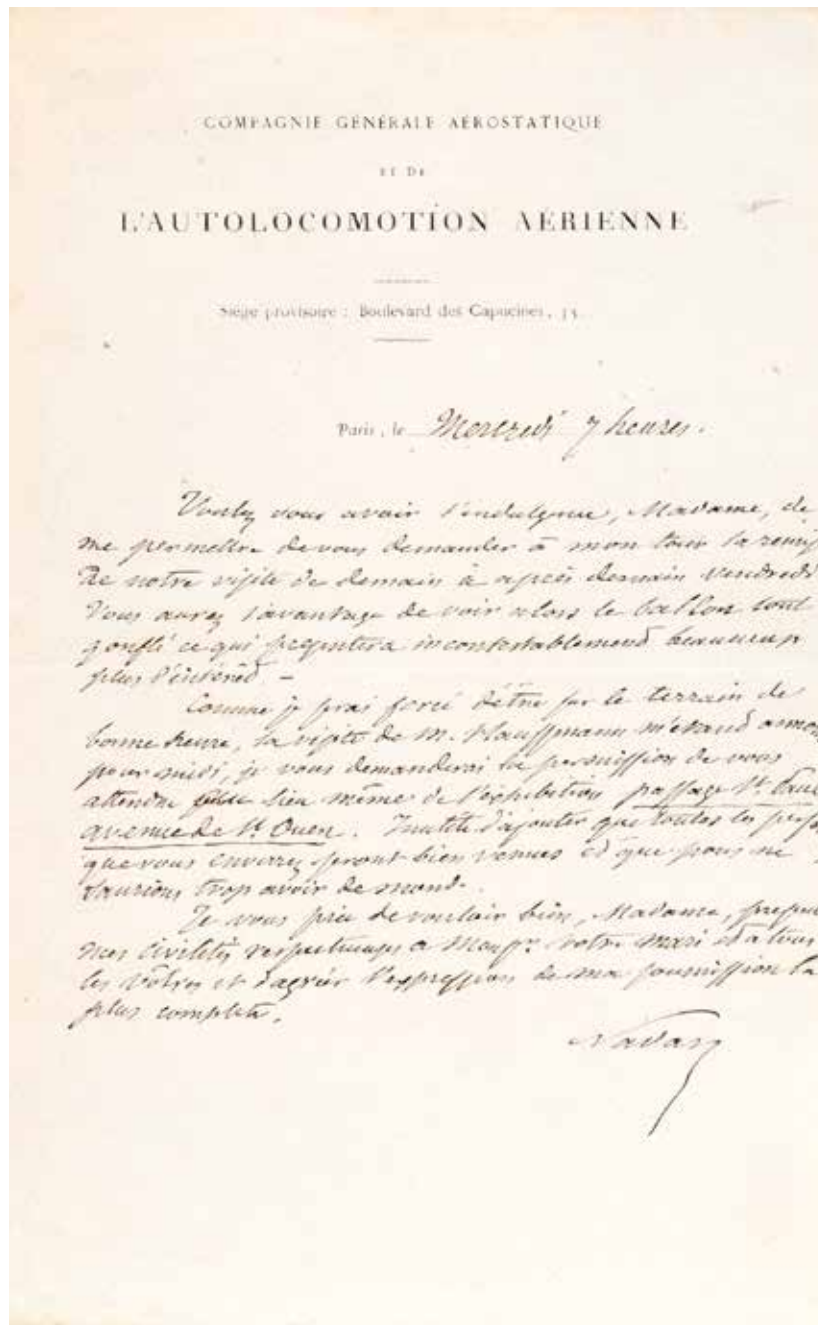 COMPAGNIE GÉNÉRALE AÉROSTATIQUE
ET DE
L'AUTOLOCOMOTION AÉRIENNE
Siège provisoire : Boulevard des Capucines, 35.
Paris, le Mercredi 7 heures.
Voulez vous avoir l'indulgence, Madame, de
me permettre de vous demander à mon tour la remis
de notre visite de demain à après demain Vendredi
Vous aurez l'avantage de voir alors le ballon tout
gonflé ce qui présentera incontestablement beaucoup
plus d'intérêt –
Comme je serai forcé d'être sur le terrain de
bonne heure, la visite de M. Haussmann m'étant annon
pour midi, je vous demanderai la permission de vous
attendre lieu même de l'exhibition passage St.
avenue de St. Ouen. Inutile d'ajouter que toutes les perso
que vous enverrez seront bien venues et que nous ne
saurions trop avoir de monde.
Je vous prie de vouloir bien, Madame, présen
mes civilités respectueuses à Monsr. votre mari et à tous
les vôtres et d'agréer l'expression de ma soumission la
plus complète.
Nadar